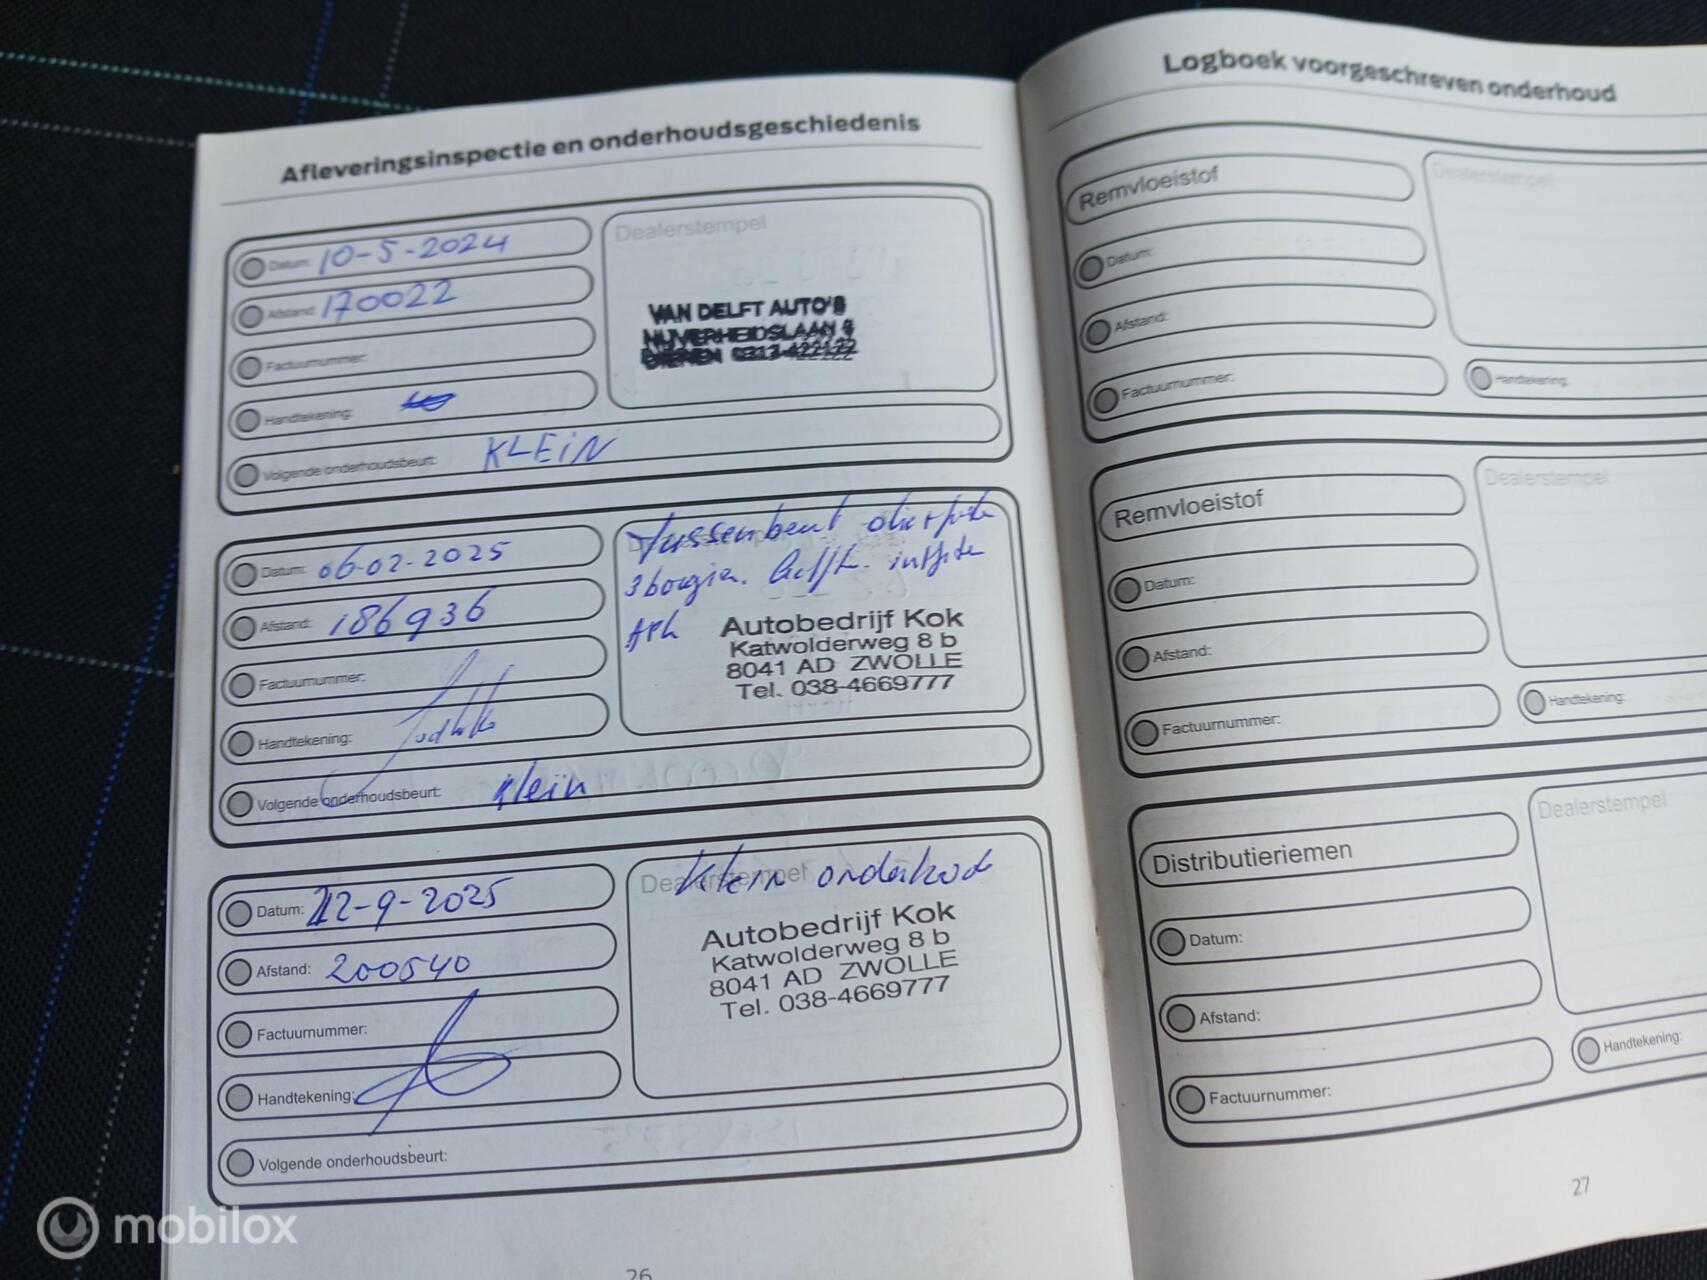 Afleveringsinspectie en onderhoudsgeschiedenis
Datum: 10-5-2024
Afstand: 170022
Factuurnummer:
Handtekening:
Volgende onderhoudsbeurt: KLEIN
Dealerstempel
VAN DELFT AUTO'S
NIJVERHEIDSLAAN
DIEREN 0313-422122
Datum: 06-02-2025
Afstand: 186936
Factuurnummer:
Handtekening:
Volgende onderhoudsbeurt: Klein
Tussenbeurt
Autobedrijf Kok
Katwolderweg 8 b
8041 AD ZWOLLE
Tel. 038-4669777
Datum: 22-9-2025
Afstand: 200540
Factuurnummer:
Handtekening:
Volgende onderhoudsbeurt:
Dealerstempel
Klein
Autobedrijf Kok
Katwolderweg 8 b
8041 AD ZWOLLE
Tel. 038-4669777
26
Logboek voorgeschreven onderhoud
Remvloeistof
Datum:
Afstand:
Factuurnummer:
Dealerstempel
Handtekening:
Remvloeistof
Datum:
Afstand:
Factuurnummer:
Dealerstempel
Handtekening:
Distributieriemen
Datum:
Afstand:
Factuurnummer:
Dealerstempel
Handtekening:
27
mobilox